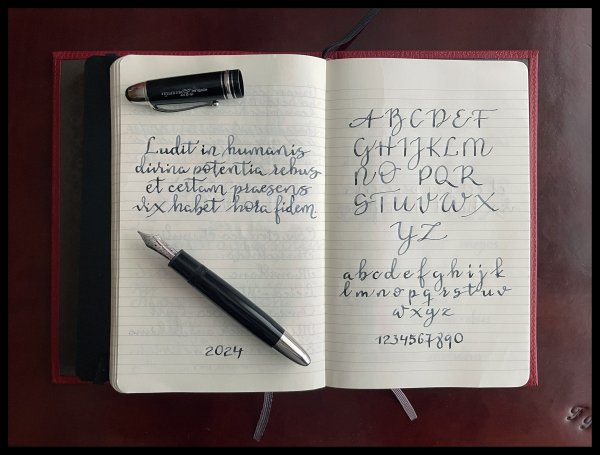 Ludit in humanis
divina potentia rebus
et certam praesens
vix habet hora fidem
2024
A B C D E F
G H I J K L M
N O P Q R
S T U V W X
Y Z
a b c d e f g h i j k
l m n o p q r s t u v
w x y z
1 2 3 4 5 6 7 8 9 0